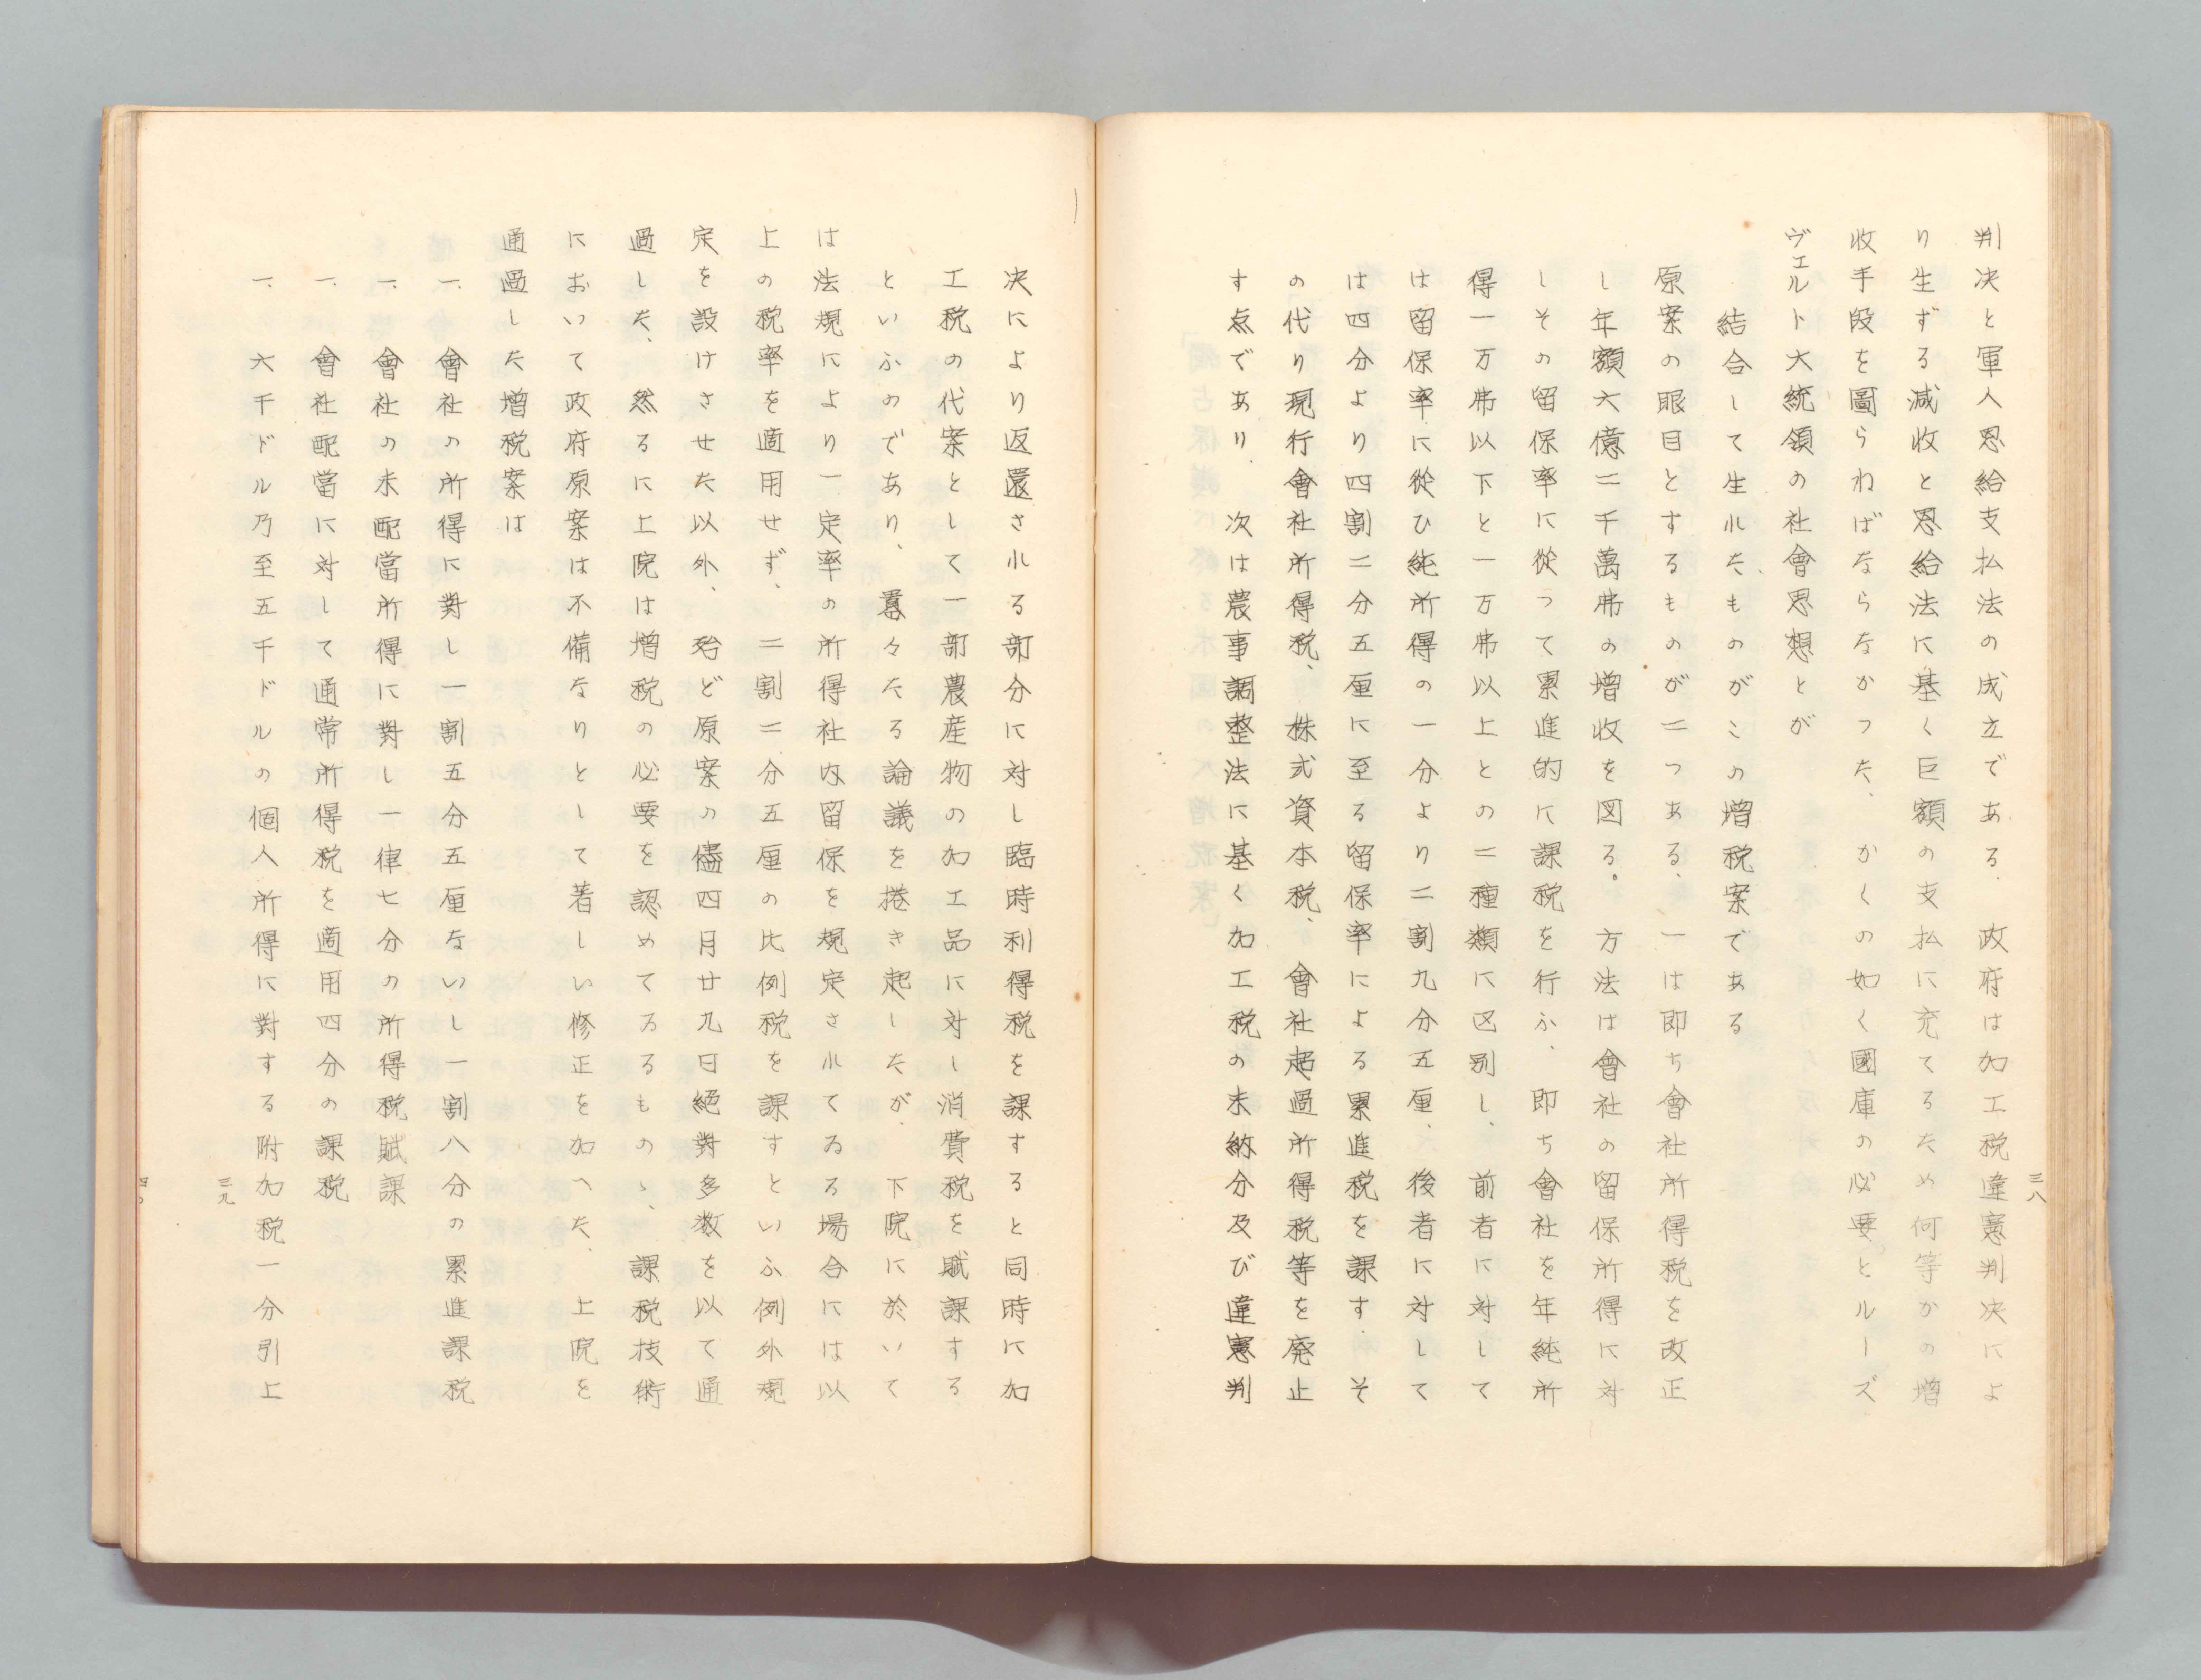 三八
判決と軍人恩給支払法の成立である、政府は加工税違憲判決によ
り生ずる減收と恩給法に基く巨額の支払に充てるため何等かの増
收手段を圖らねばならなかつた、かくの如く國庫の必要とルーズ
ヴェルト大統領の社會思想とが
結合して生れたものがこの増税案である
原案の眼目とするものが二つある、一は即ち會社所得税を改正
し年額六億二千萬弗の増收を図る。方法は會社の留保所得に対
しその留保率に從つて累進的に課税を行ふ、即ち會社を年純所
得一万弗以下と一万弗以上との二種類に区別し、前者に対して
は留保率に從ひ純所得の一分より二割九分五厘、後者に対して
は四分より四割二分五厘に至る留保率による累進税を課す、そ
の代り現行會社所得税、株式資本税、會社超過所得税等を廃止
す点であり、次は農事調整法に基く加工税の未納分及び違憲判
決により返還される部分に対し臨時利得税を課すると同時に加
工税の代案として一部農産物の加工品に対し消費税を賦課する
といふのであり、囂々たる論議を捲き起したが、下院に於いて
は法規により一定率の所得社内留保を規定されてゐる場合には以
上の税率を適用せず、二割二分五厘の比例税を課すといふ例外規
定を設けさせた以外、殆ど原案の儘四月廿九日絶對多数を以て通
過した、然るに上院は増税の必要を認めてゐるものゝ、課税技術
において政府原案は不備なりとして著しい修正を加へた、上院を
通過した増税案は
一、會社の所得に對し一割五分五厘ないし一割八分の累進課税
一、會社の未配當所得に對し一律七分の所得税賦課
一、會社配當に対して通常所得税を適用四分の課税
一、六千ドル乃至五千ドルの個人所得に對する附加税一分引上
三九
四〇